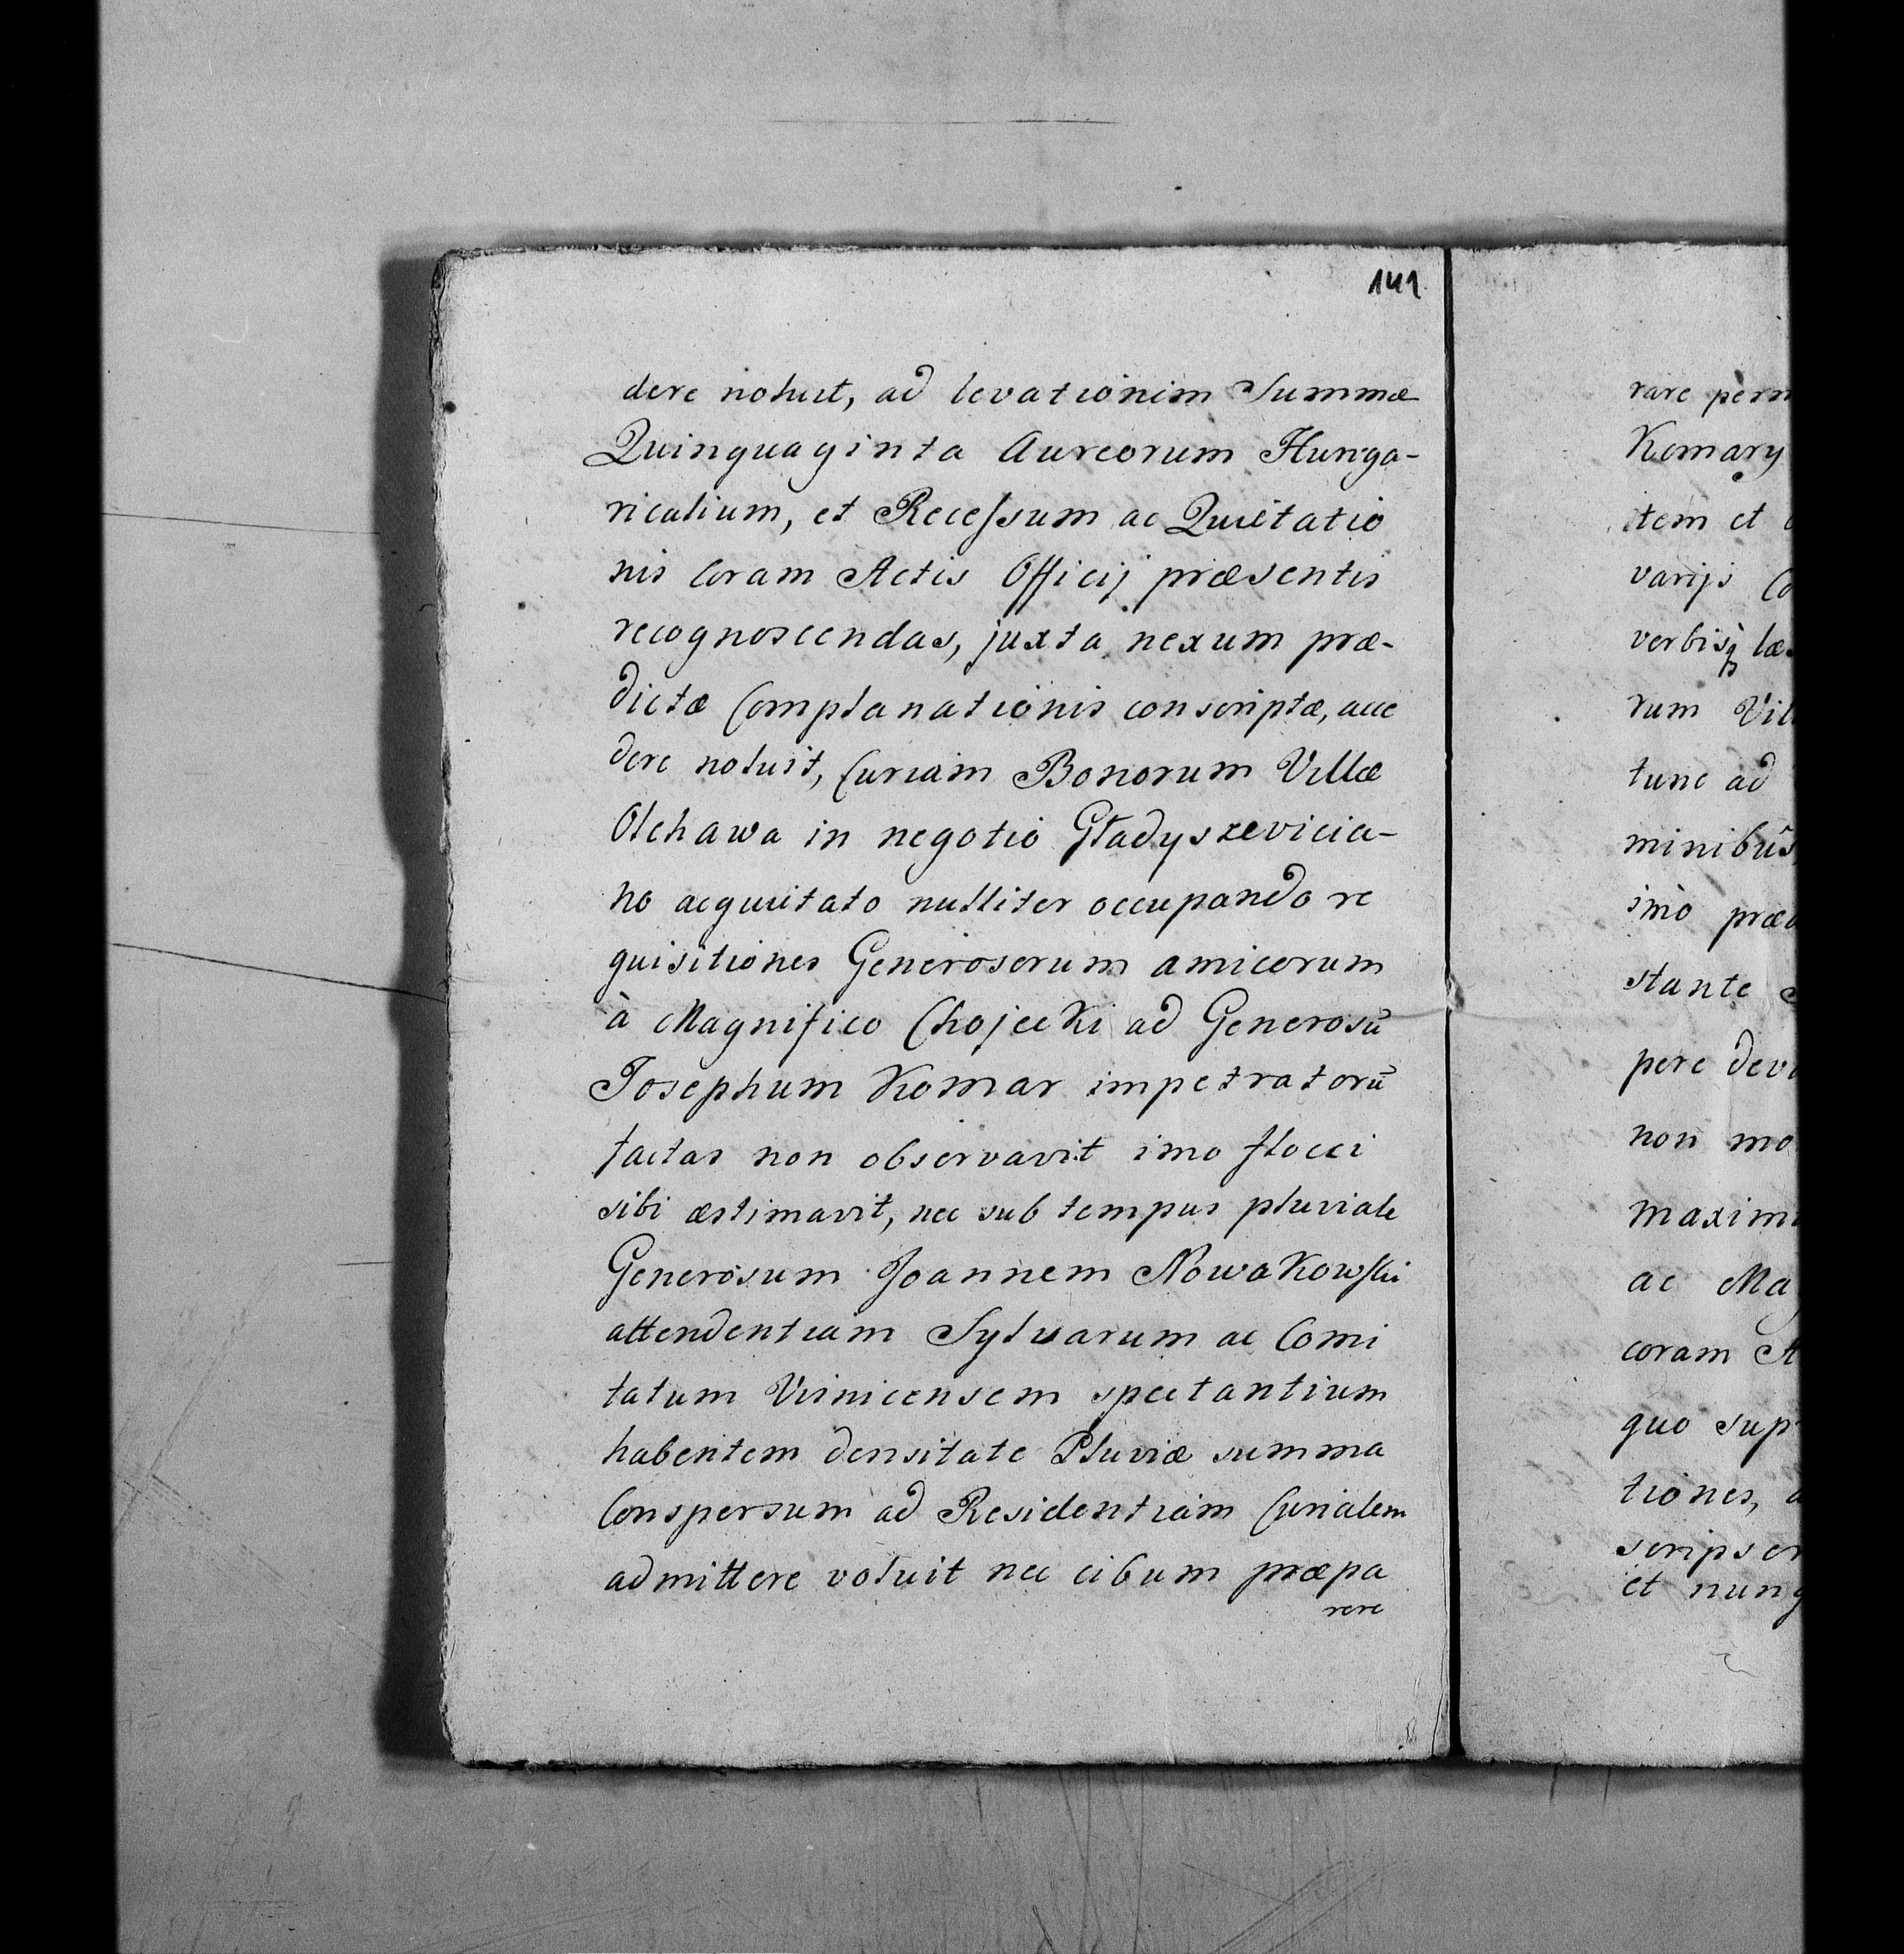 141
dere noluit, ad levationem Summæ
Quinquaginta Aureorum Hunga-
ricalium, et Recessum ac Quietatio
nis Coram Actis Officij præsentis
recognoscendas, juxta nexum præ-
dictæ Complanationis conscriptæ, acce
dere noluit, Curiam Bonorum Villæ
Olchawa in negotio Gładyszevicia-
no acquietato nulliter occupando re
quisitiones Generosorum amicorum
à Magnifico Chojecki ad Generosū
Josephum Komar impetratorū
factas non observavit imo flocci
sibi æstimavit, nec sub tempus pluviale
Generosum Joannem Nowakowski
attendentiam Sylvarum ac Comi
tatum Vinicensem spectantium
habentem densitate Pluviæ summa
Conspersum ad Residentiam Curialem
admittere voluit nec cibum præpa
rere
rare perm
Komary
item et
varijs Co
verbisq læ
rum Vill
tunc ad
minibûs
imò præ
stante
pere dev
non mo
maxim
ac Ma
coram A
quo sup
tiones,
scripser
et nunq